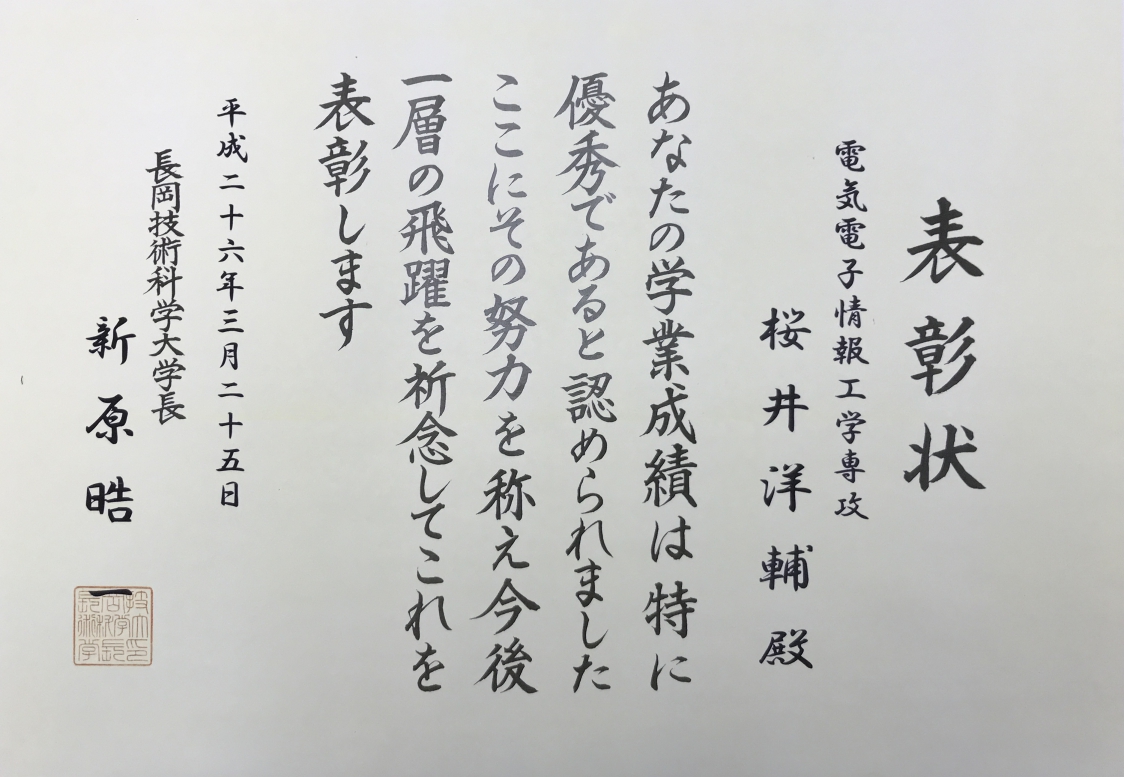 表彰状
電気電子情報工学専攻
桜井洋輔殿
あなたの学業成績は特に
優秀であると認められました
ここにその努力を称え今後
一層の飛躍を祈念してこれを
表彰します
平成二十六年三月二十五日
長岡技術科学大学長
新原晧一